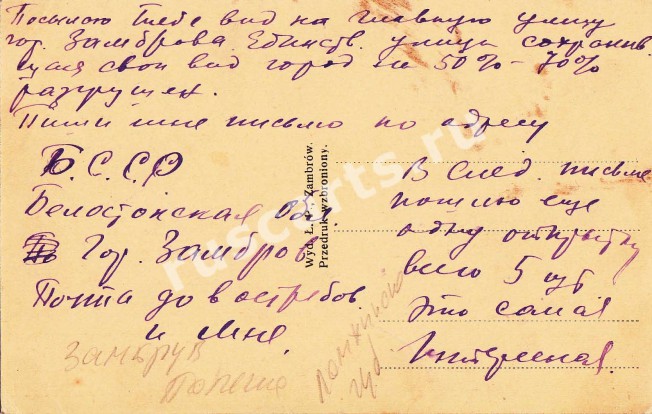 Посылаю тебе вид на главную улицу
гор. Замброва. Единств. улица сохранив
шая свой вид город на 50% - 70%
разрушен.
Пиши мне письмо по адресу
Б.С.С.Р
Белостокская обл.
Гор. Замбров
Почта до востребов.
и мне.
Wyd. Ł. Zambrów.
Przedruk wzbroniony.
В след. письме
пошлю еще
одну открытку
всего 5 шт
Это самая
Интересная.
Замбрув
Польша
Ломжинска
губ
ruscarts.ru